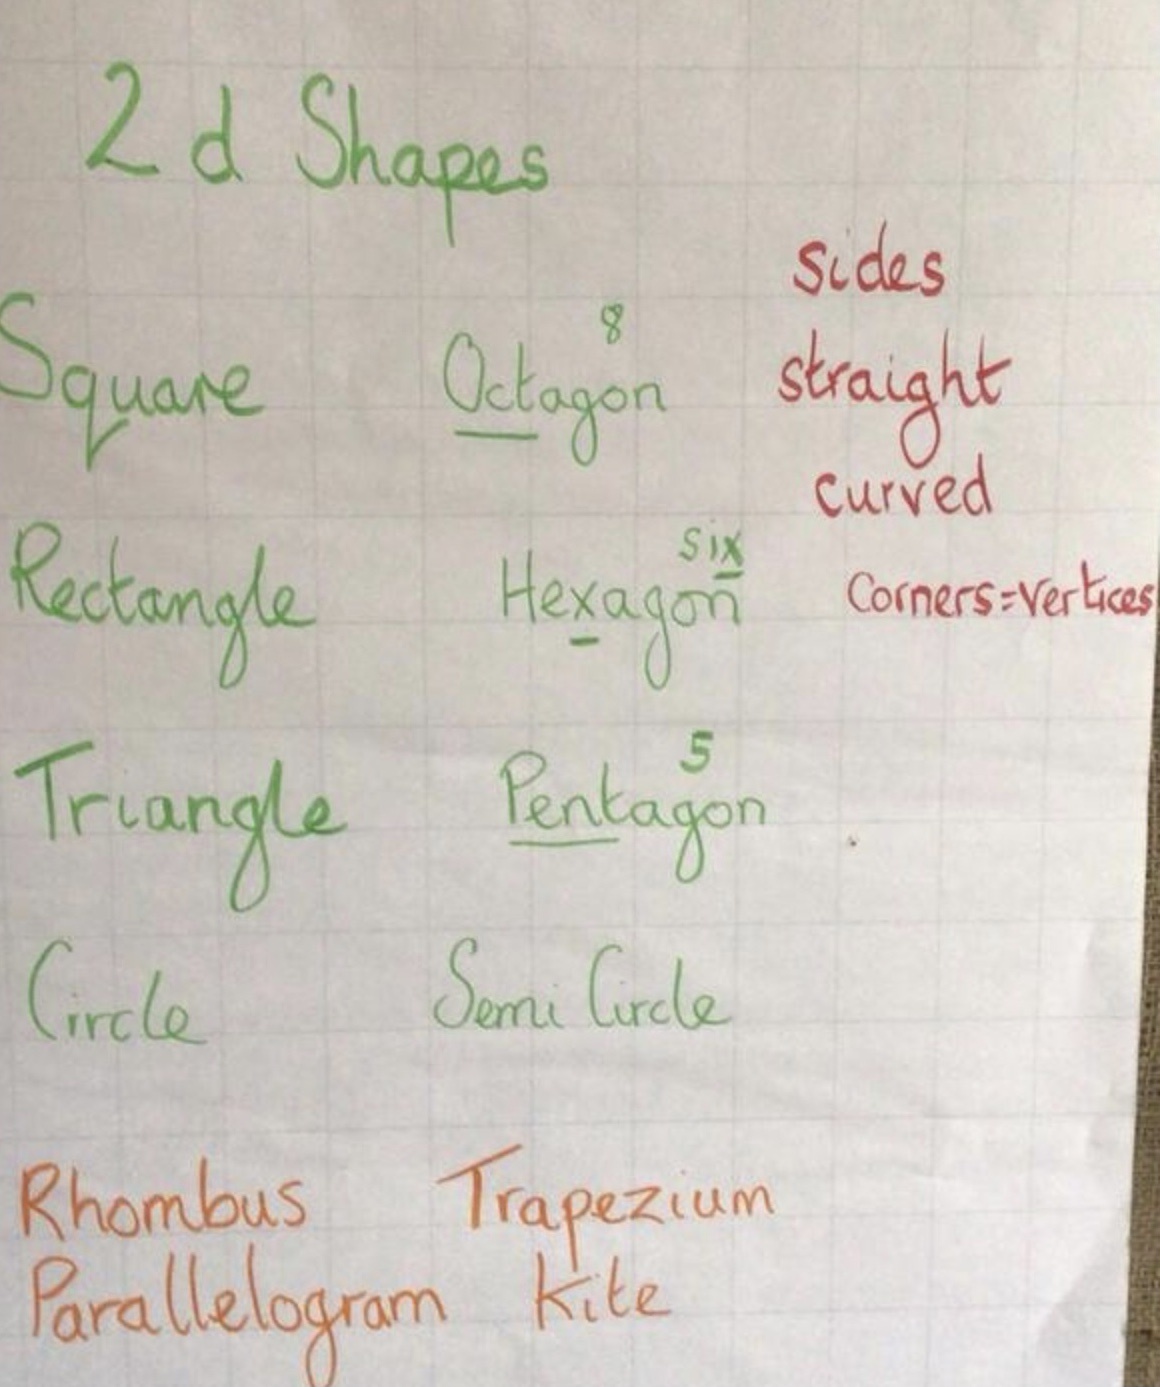 2d Shapes
sides
Square Octagon 8 straight
curved
Rectangle Hexagon six Corners=vertices
Triangle Pentagon 5
Circle Semi Circle
Rhombus Trapezium
Parallelogram Kite